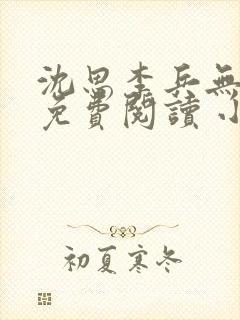 沈思李兵無
免費閱讀
初夏寒冬